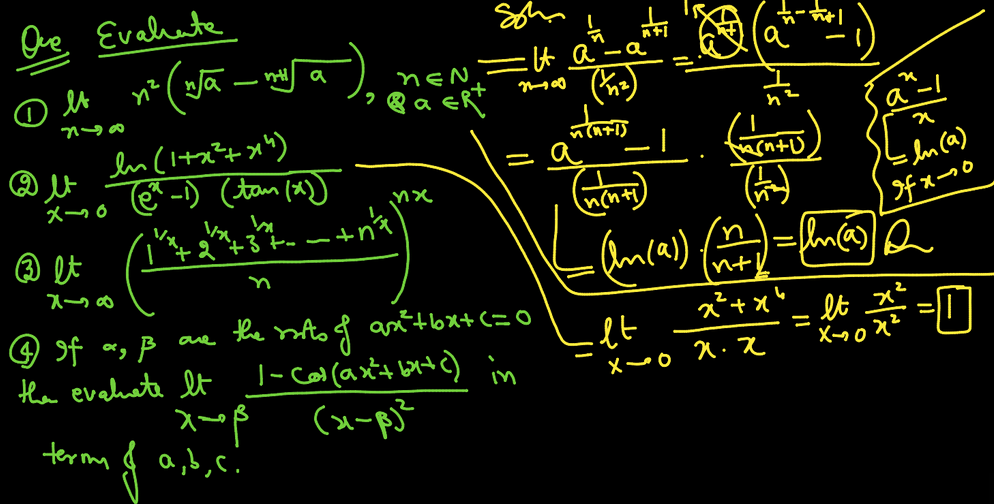 Que Evaluate
① lt n→∞ n² (ⁿ√a − ⁿ⁺¹√a), n ∈ N & a ∈ R⁺
② lt x→0 ln(1+x²+x⁴) / (eˣ−1) (tan(x))
③ lt x→∞ ((1^{1/x} + 2^{1/x} + 3^{1/x} + - - - + n^{1/x}) / n)^{nx}
④ If α, β are the roots of ax²+bx+c=0
the evaluate lt x→β (1−cos(ax²+bx+c)) / (x−β)² in
term of a, b, c.
Soln
= lt n→∞ (a^{1/n} − a^{1/(n+1)}) / (1/n²) = a^{1/(n+1)} (a^{1/n − 1/(n+1)} − 1) / (1/n²)
1
= (a^{1/(n(n+1))} − 1) / (1/(n(n+1))) · (1/(n(n+1))) / (1/n²)
(aˣ−1)/x
= ln(a)
If x→0
= (ln(a)) · (n/(n+1)) = ln(a)
= lt x→0 (x²+x⁴) / (x·x) = lt x→0 x²/x² = 1